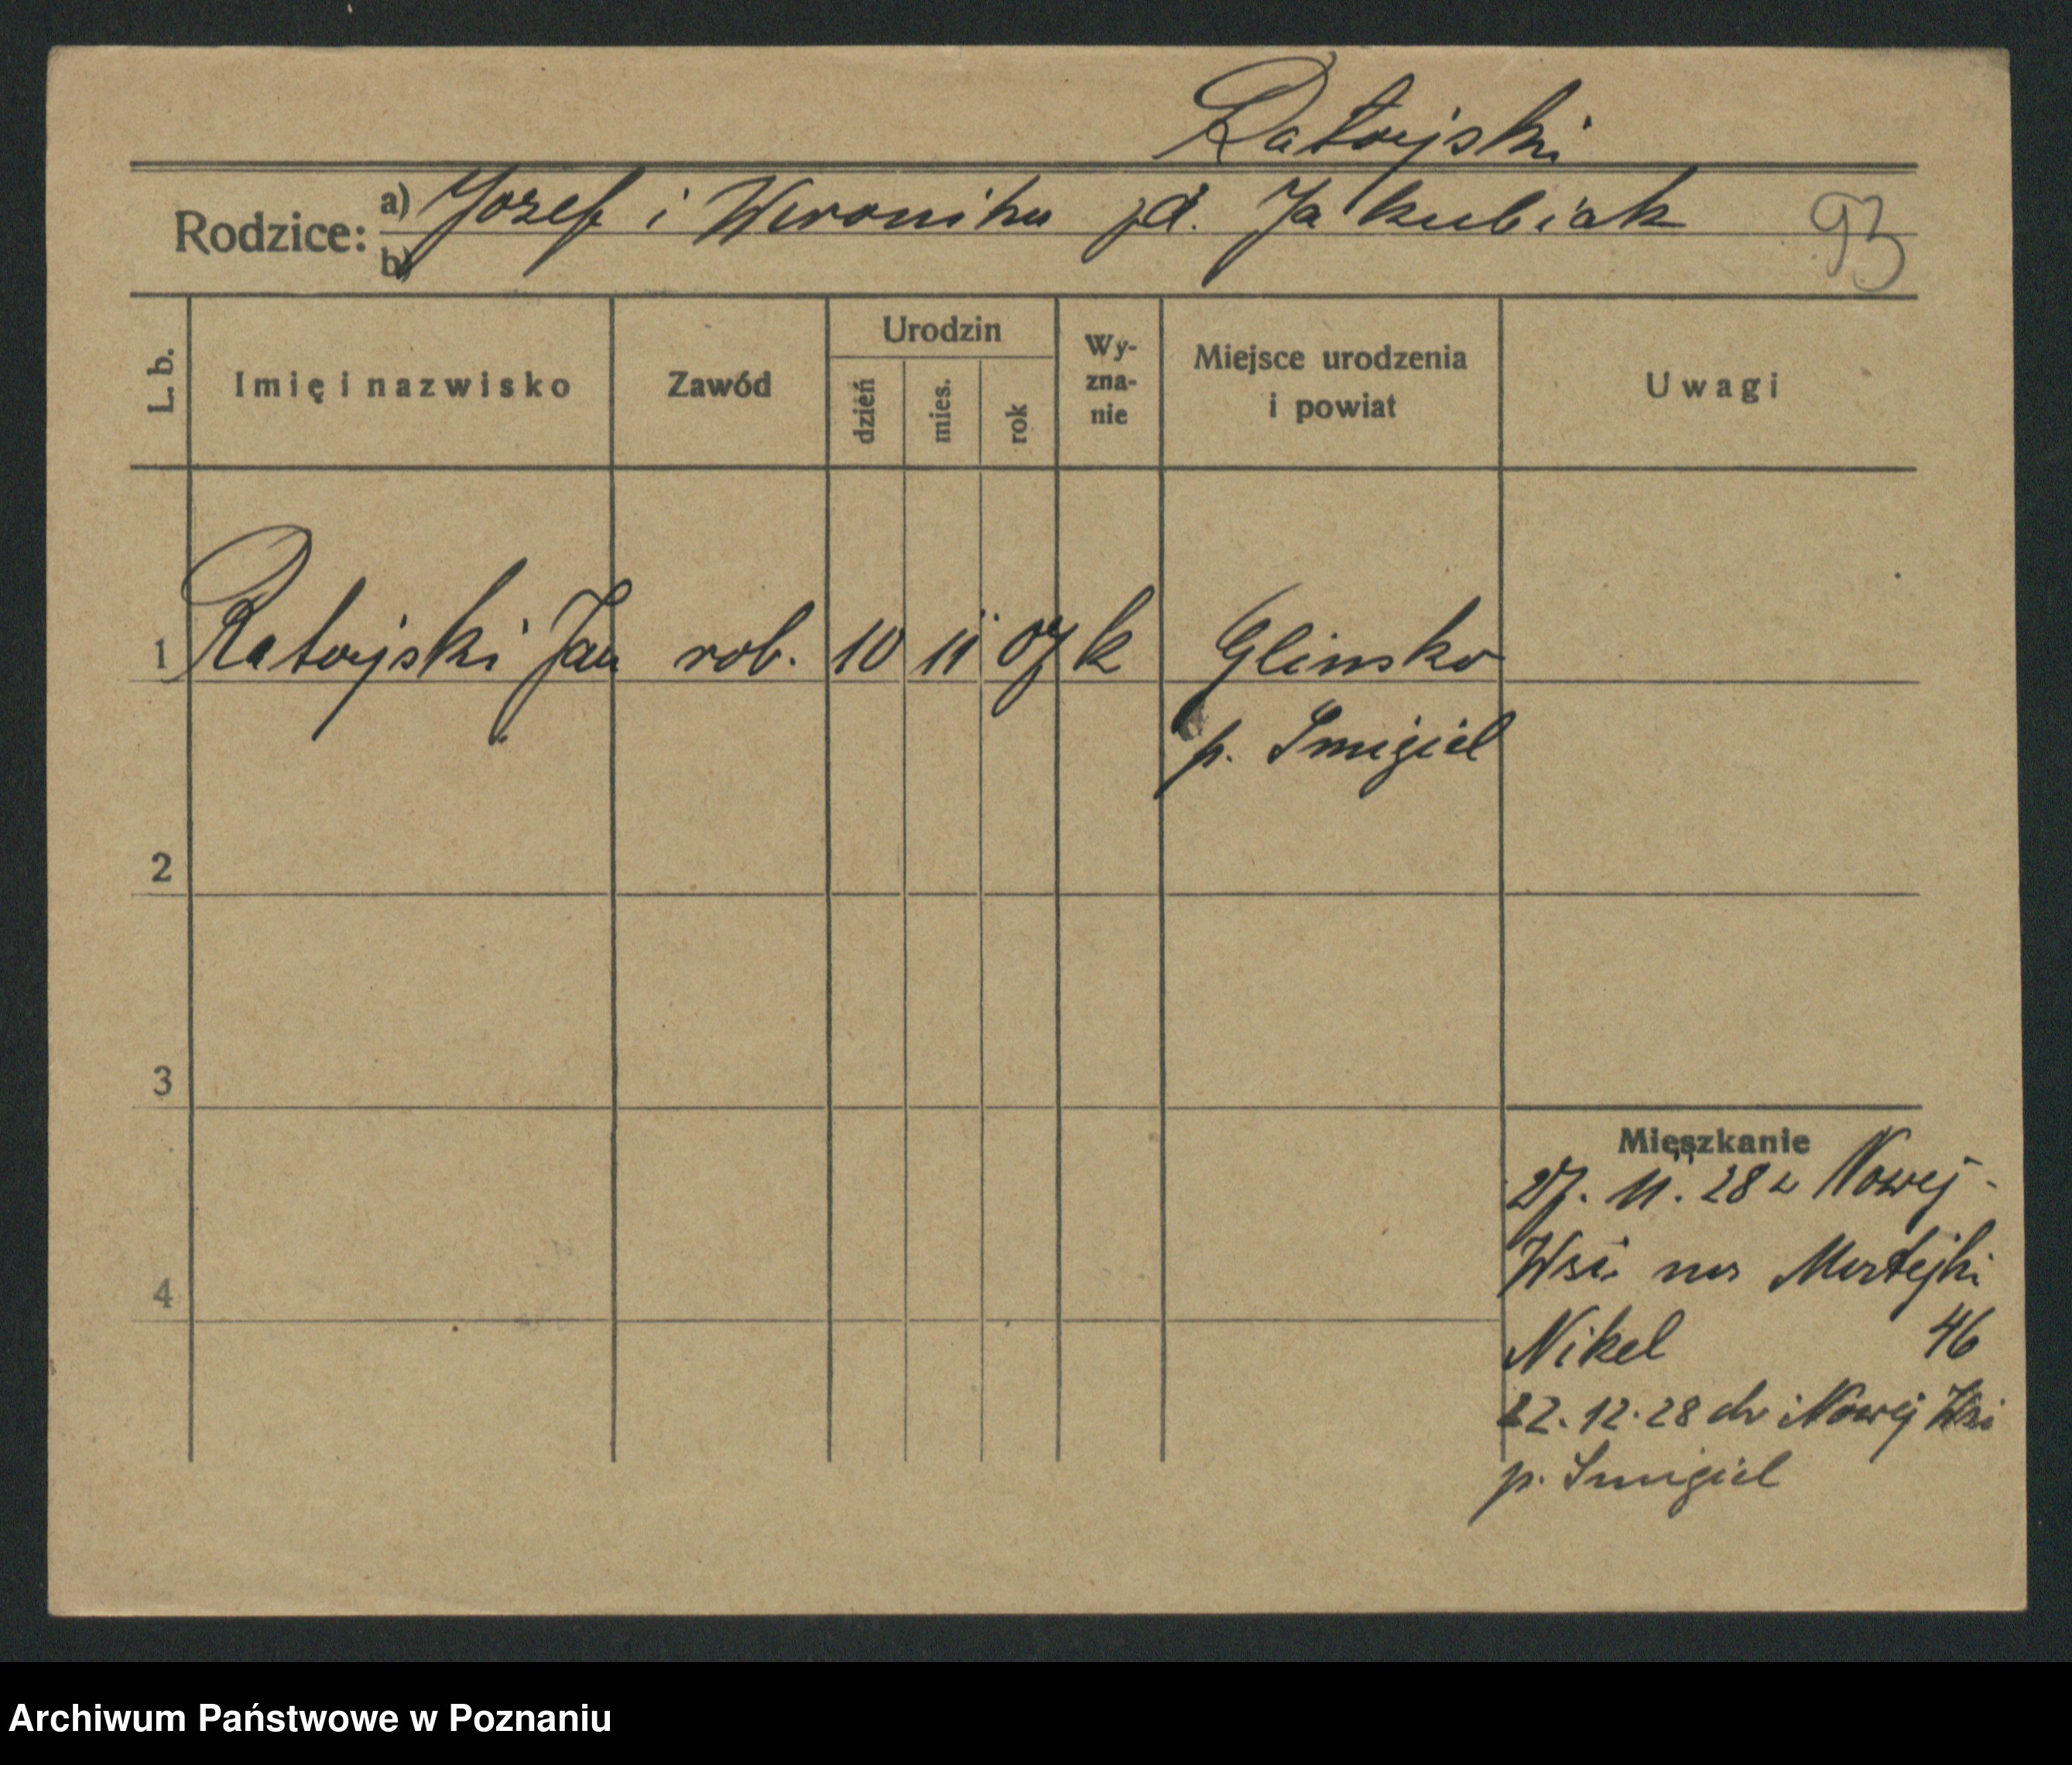 Ratajski
Rodzice: a) Jozef i Weronika zd. Jakubiak 93
b)
L. b. Imię i nazwisko Zawód Urodzin dzień mies. rok Wy-zna-nie Miejsce urodzenia i powiat Uwagi
1 Ratajski Jan rob. 10 11 07 k Glinsko
p. Smigiel
2
3
4
Mieszkanie
27. 11. 28 z Nowej-
Wsi na Matejki
Nikel 46
22. 12. 28 do Nowej Wsi
p. Smigiel
Archiwum Państwowe w Poznaniu